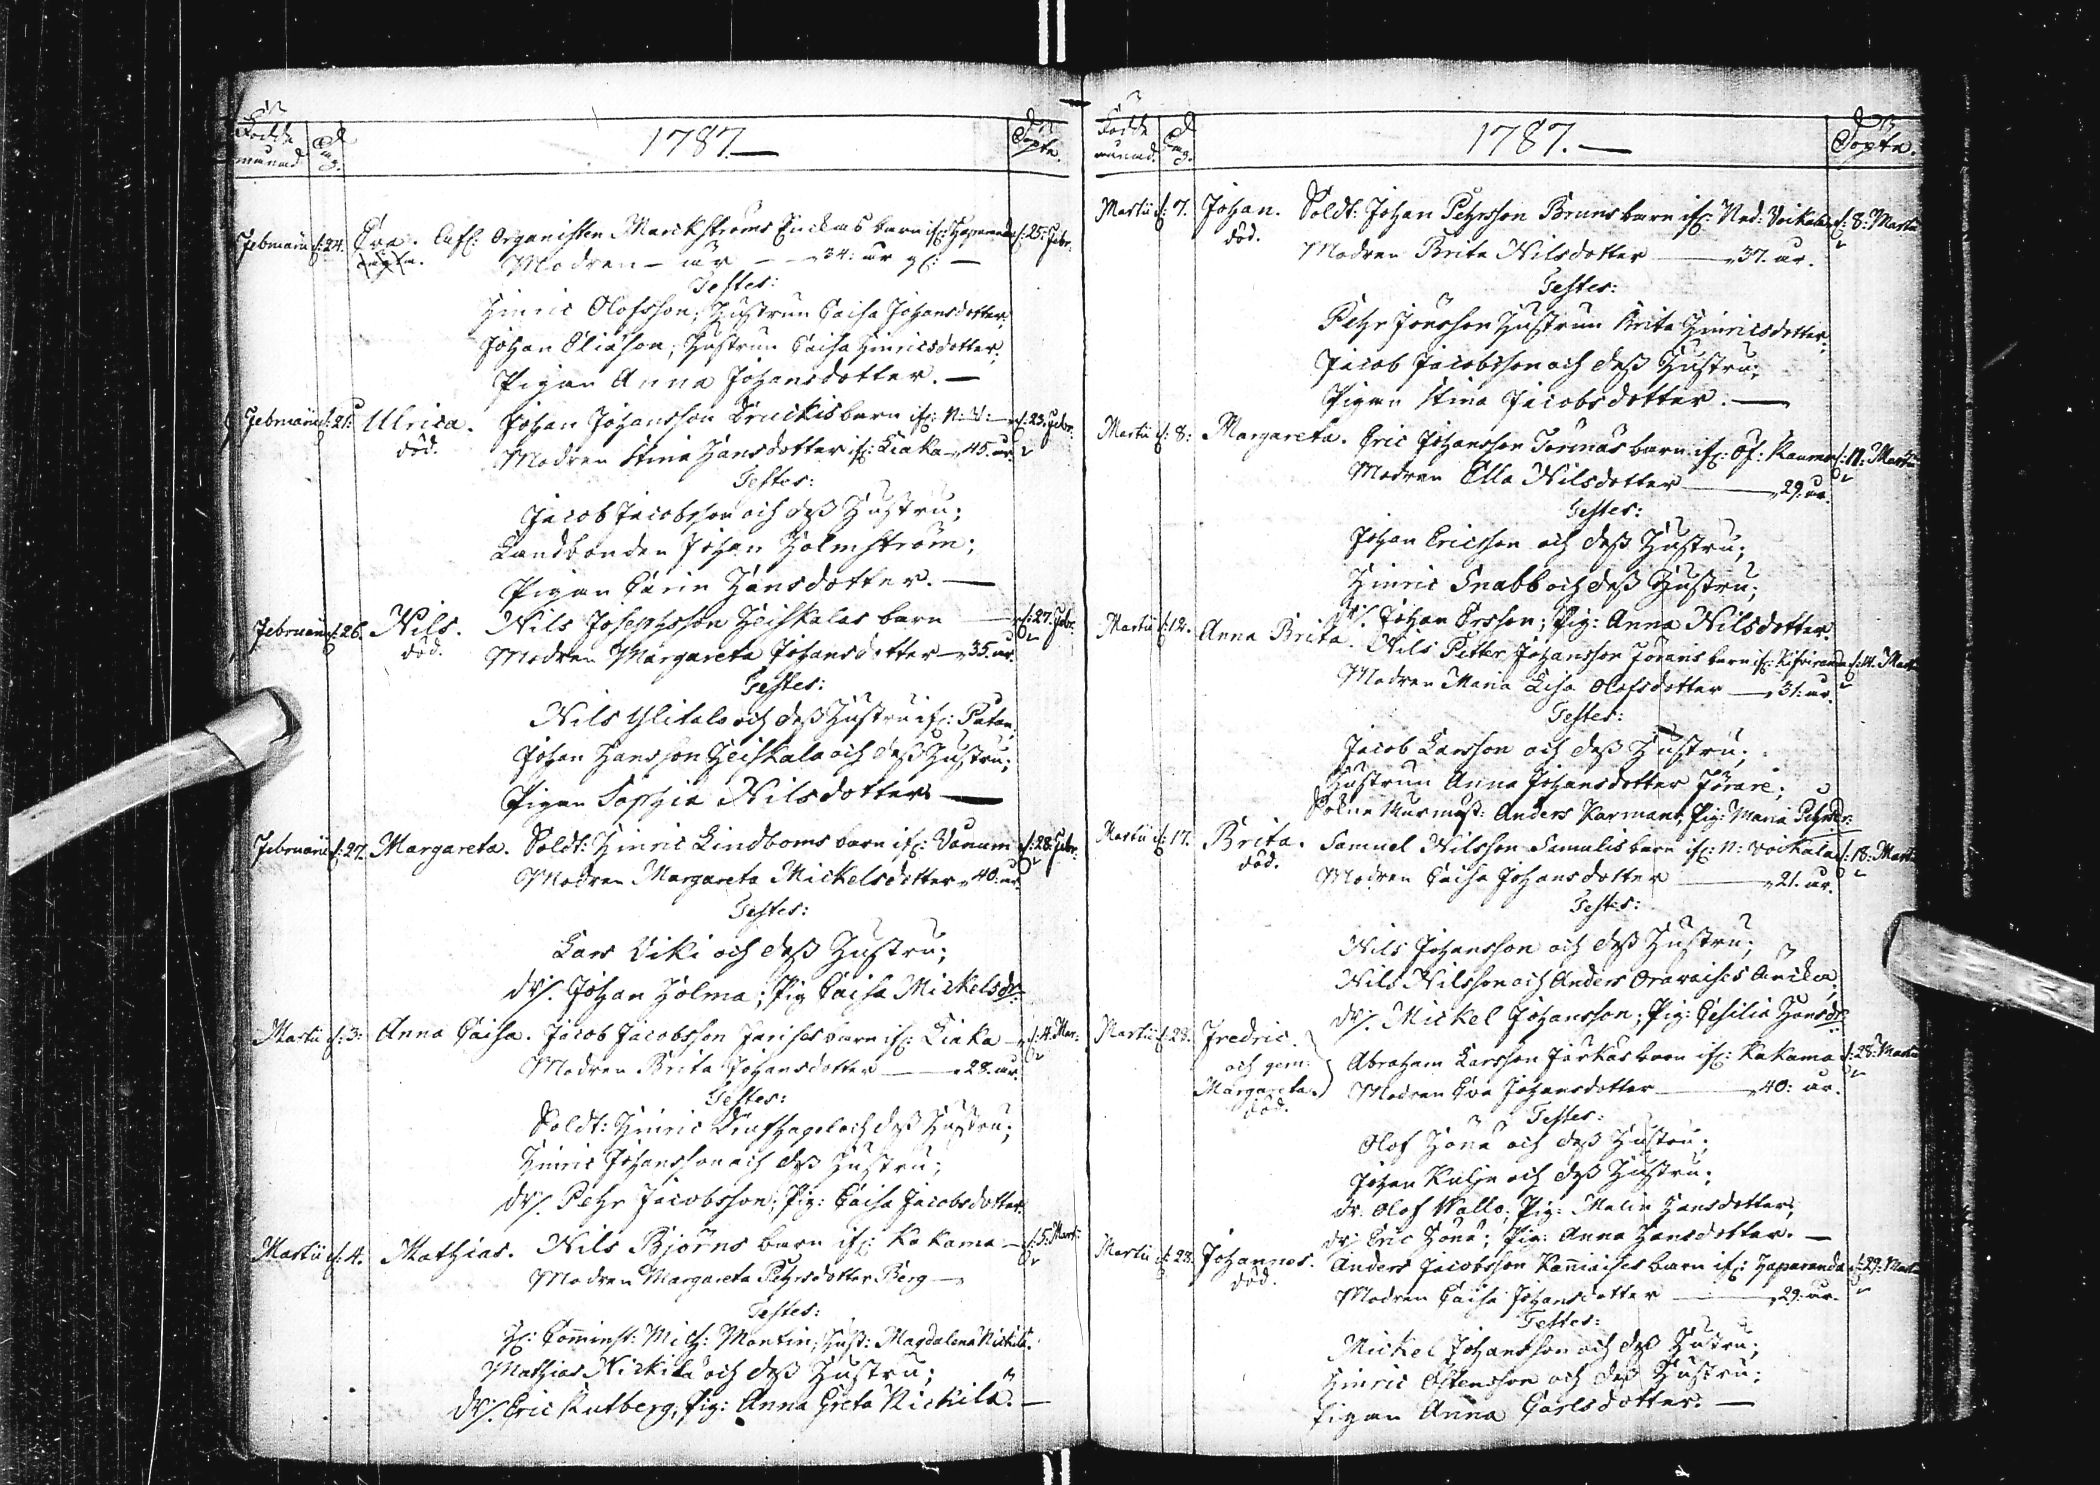 Födde
månad
Dag.
1787.
Döpte.
Februarii d: 24. Eva. afl: Organisten Marckströms Enckas barn if: Haparanda d: 25: Febr:
Modren — är — 34: år gl: —
Testes:
Hinric Olofsson, Hustrun Caisa Johansdotter;
Johan Eliasson, Hustrun Caisa Hinricsdotter;
Pigan Anna Johansdotter. —
Februarii d: 21: Ulrica. Johan Johansson barn if: N: V: — d: 23. Febr:
död. Modren Stina Hansdotter if: Kiaka 45. år.
Testes:
Jacob Jacobsson och dess Hustru;
Landbonden Johan Holmström;
Pigan Carin Hansdotter. —
Februarii d: 26. Nils. Nils Josephsson Heiskalas barn — d: 27. Febr:
död. Modren Margareta Johansdotter — 35. år.
Testes:
Nils Ylitalo och dess Hustru if:
Johan Hansson Heiskala och dess Hustru;
Pigan Sophia Nilsdotter —
Februarii d: 27. Margareta. Soldt: Hinric Lindboms barn if: d: 28: Febr:
Modren Margareta Mickelsdotter 40. år.
Testes:
Lars Viki och dess Hustru;
Dr/. Johan Holma; Pig Caisa Mickelsdr:
Martii d: 3: Anna Caisa. Jacob Jacobsson barn if: Kiaka — d: 4. Mar:
Modren Brita Johansdotter — 28. år.
Testes:
Soldt: Hinric och dess Hustru;
Hinric Johansson och dess Hustru;
Dr/. Pehr Jacobsson; Pig: Caisa Jacobsdotter.
Martii d: 4. Mathias. Nils Björns barn if: Kakama — d: 5: Mart:
Modren Margareta Pehrsdotter Berg —
Testes:
H: Commist: Mich: Montin; Hust: Magdalena Nickilä.
Mathias Nickilä och dess Hustru;
Dr/. Eric Rutberg, Pig: Anna Greta Nickilä. —
Födde
månad.
Dag.
1787. —
Döpte.
Martii d: 7. Johan. Soldt: Johan Pehrsson Bruns barn if: Ned: Voikala d: 8: Martii
död. Modren Brita Nilsdotter — 37. år.
Testes:
Pehr Jönsson Hustrun Brita Hinricsdotter;
Jacob Jacobsson och dess Hustru;
Pigan Stina Jacobsdotter. —
Martii d: 8: Margareta. Eric Johansson barn if: Öf: d: 11: Martii
Modren Ella Nilsdotter — 29. år.
Testes:
Johan Ericsson och dess Hustru;
Hinric Snabb och dess Hustru;
Dr/. Johan Ersson; Pig: Anna Nilsdotter.
Martii d: 12. Anna Brita. Nils Petter Johansson barn if: d: 14. Martii
Modren Maria Lisa Olofsdotter — 31: år.
Testes:
Jacob Larsson och dess Hustru;
Hustrun Anna Johansdotter
Anders Karmant, Pig: Maria Pehrdr:
Martii d: 17. Brita. Samuel Nilsson Samulis barn if: N: Voikala d: 18: Martii
död. Modren Caisa Johansdotter — 21. år.
Testes:
Nils Johansson och dess Hustru;
Nils Nilsson och Anders Oravaises Änckor;
Dr/. Mickel Johansson, Pig: Cesilia Hansdr:
Martii d: 23. Fredric.
och gem: Abraham Larsson barn if: Kakama d: 28: Martii
Margareta. Modren Eva Johansdotter — 40: år.
död.
Testes:
Olof och dess Hustru;
Johan och dess Hustru;
Dr. Olof Wallo, Pig: Malin Hansdotter;
Dr/. Eric Pig: Anna Hansdotter. —
Martii d: 28. Johannes. Anders Jacobsson barn if: Haparanda d: 29: Martii
död. Modren Caisa Johansdotter — 29. år.
Testes:
Mickel Johansson och dess Hustru;
Hinric Östensson och dess Hustru;
Pigan Anna Carlsdotter. —